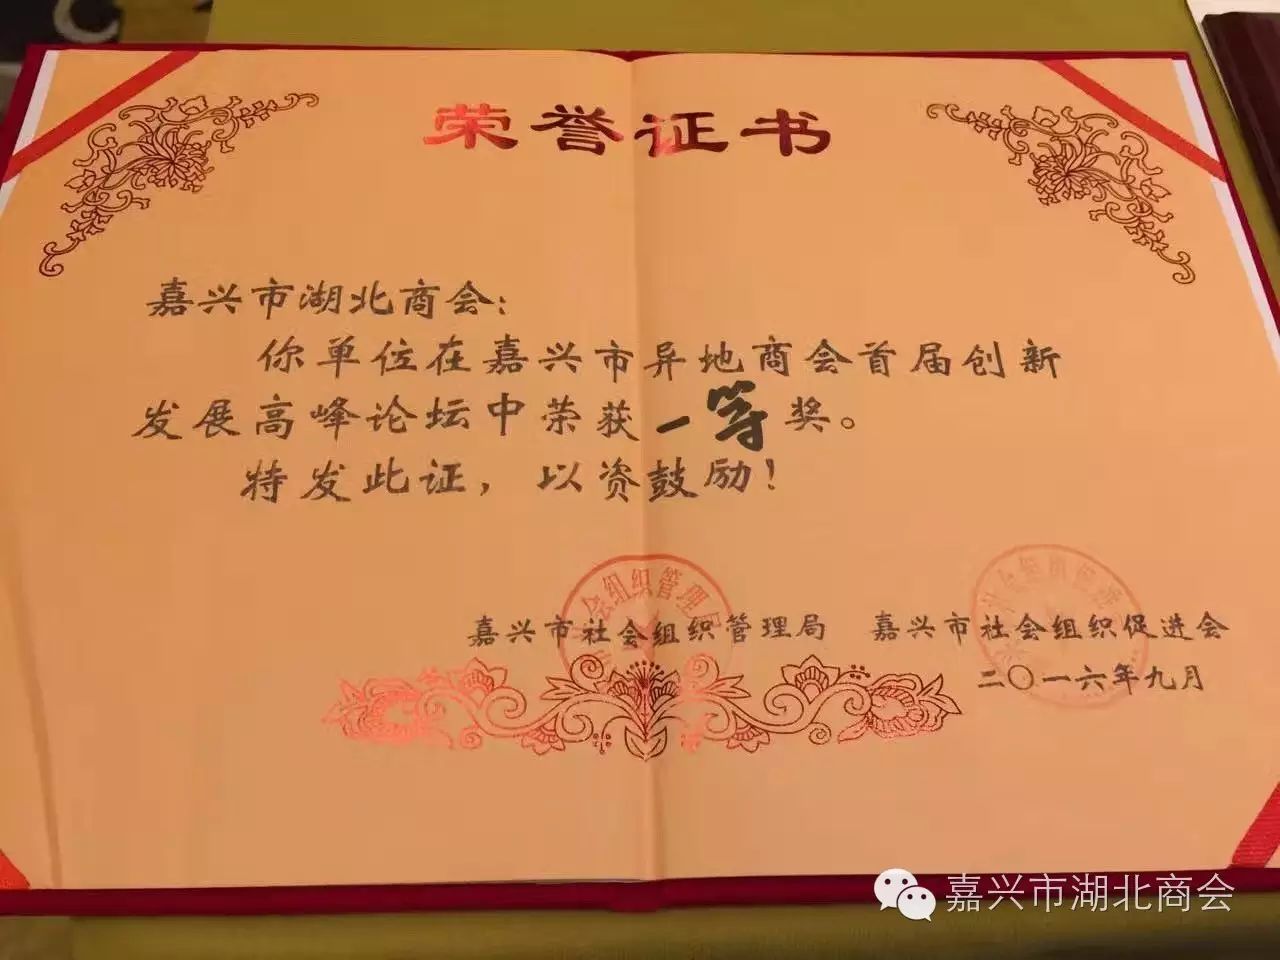 荣誉证书
嘉兴市湖北商会：
你单位在嘉兴市异地商会首届创新
发展高峰论坛中荣获一等奖。
特发此证，以资鼓励！
会组织管理局
社会组织促进
嘉兴市社会组织管理局 嘉兴市社会组织促进会
二〇一六年九月
嘉兴市湖北商会